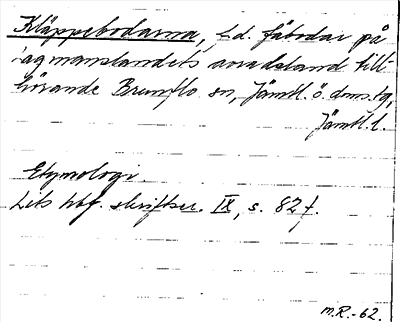 Kläppebodarna, f.d. fäbodar på
lagmanslandets avradsland till-
hörande Brunflo sn, Jämtl. ö. dms. tg,
Jämtl. l.
Etymologi.
Lits hbf. skriftser. IX, s. 82 f.
M.R.-62.